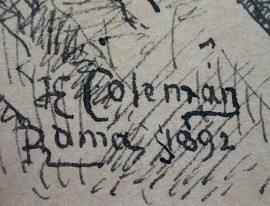 H Coleman
Roma 1892